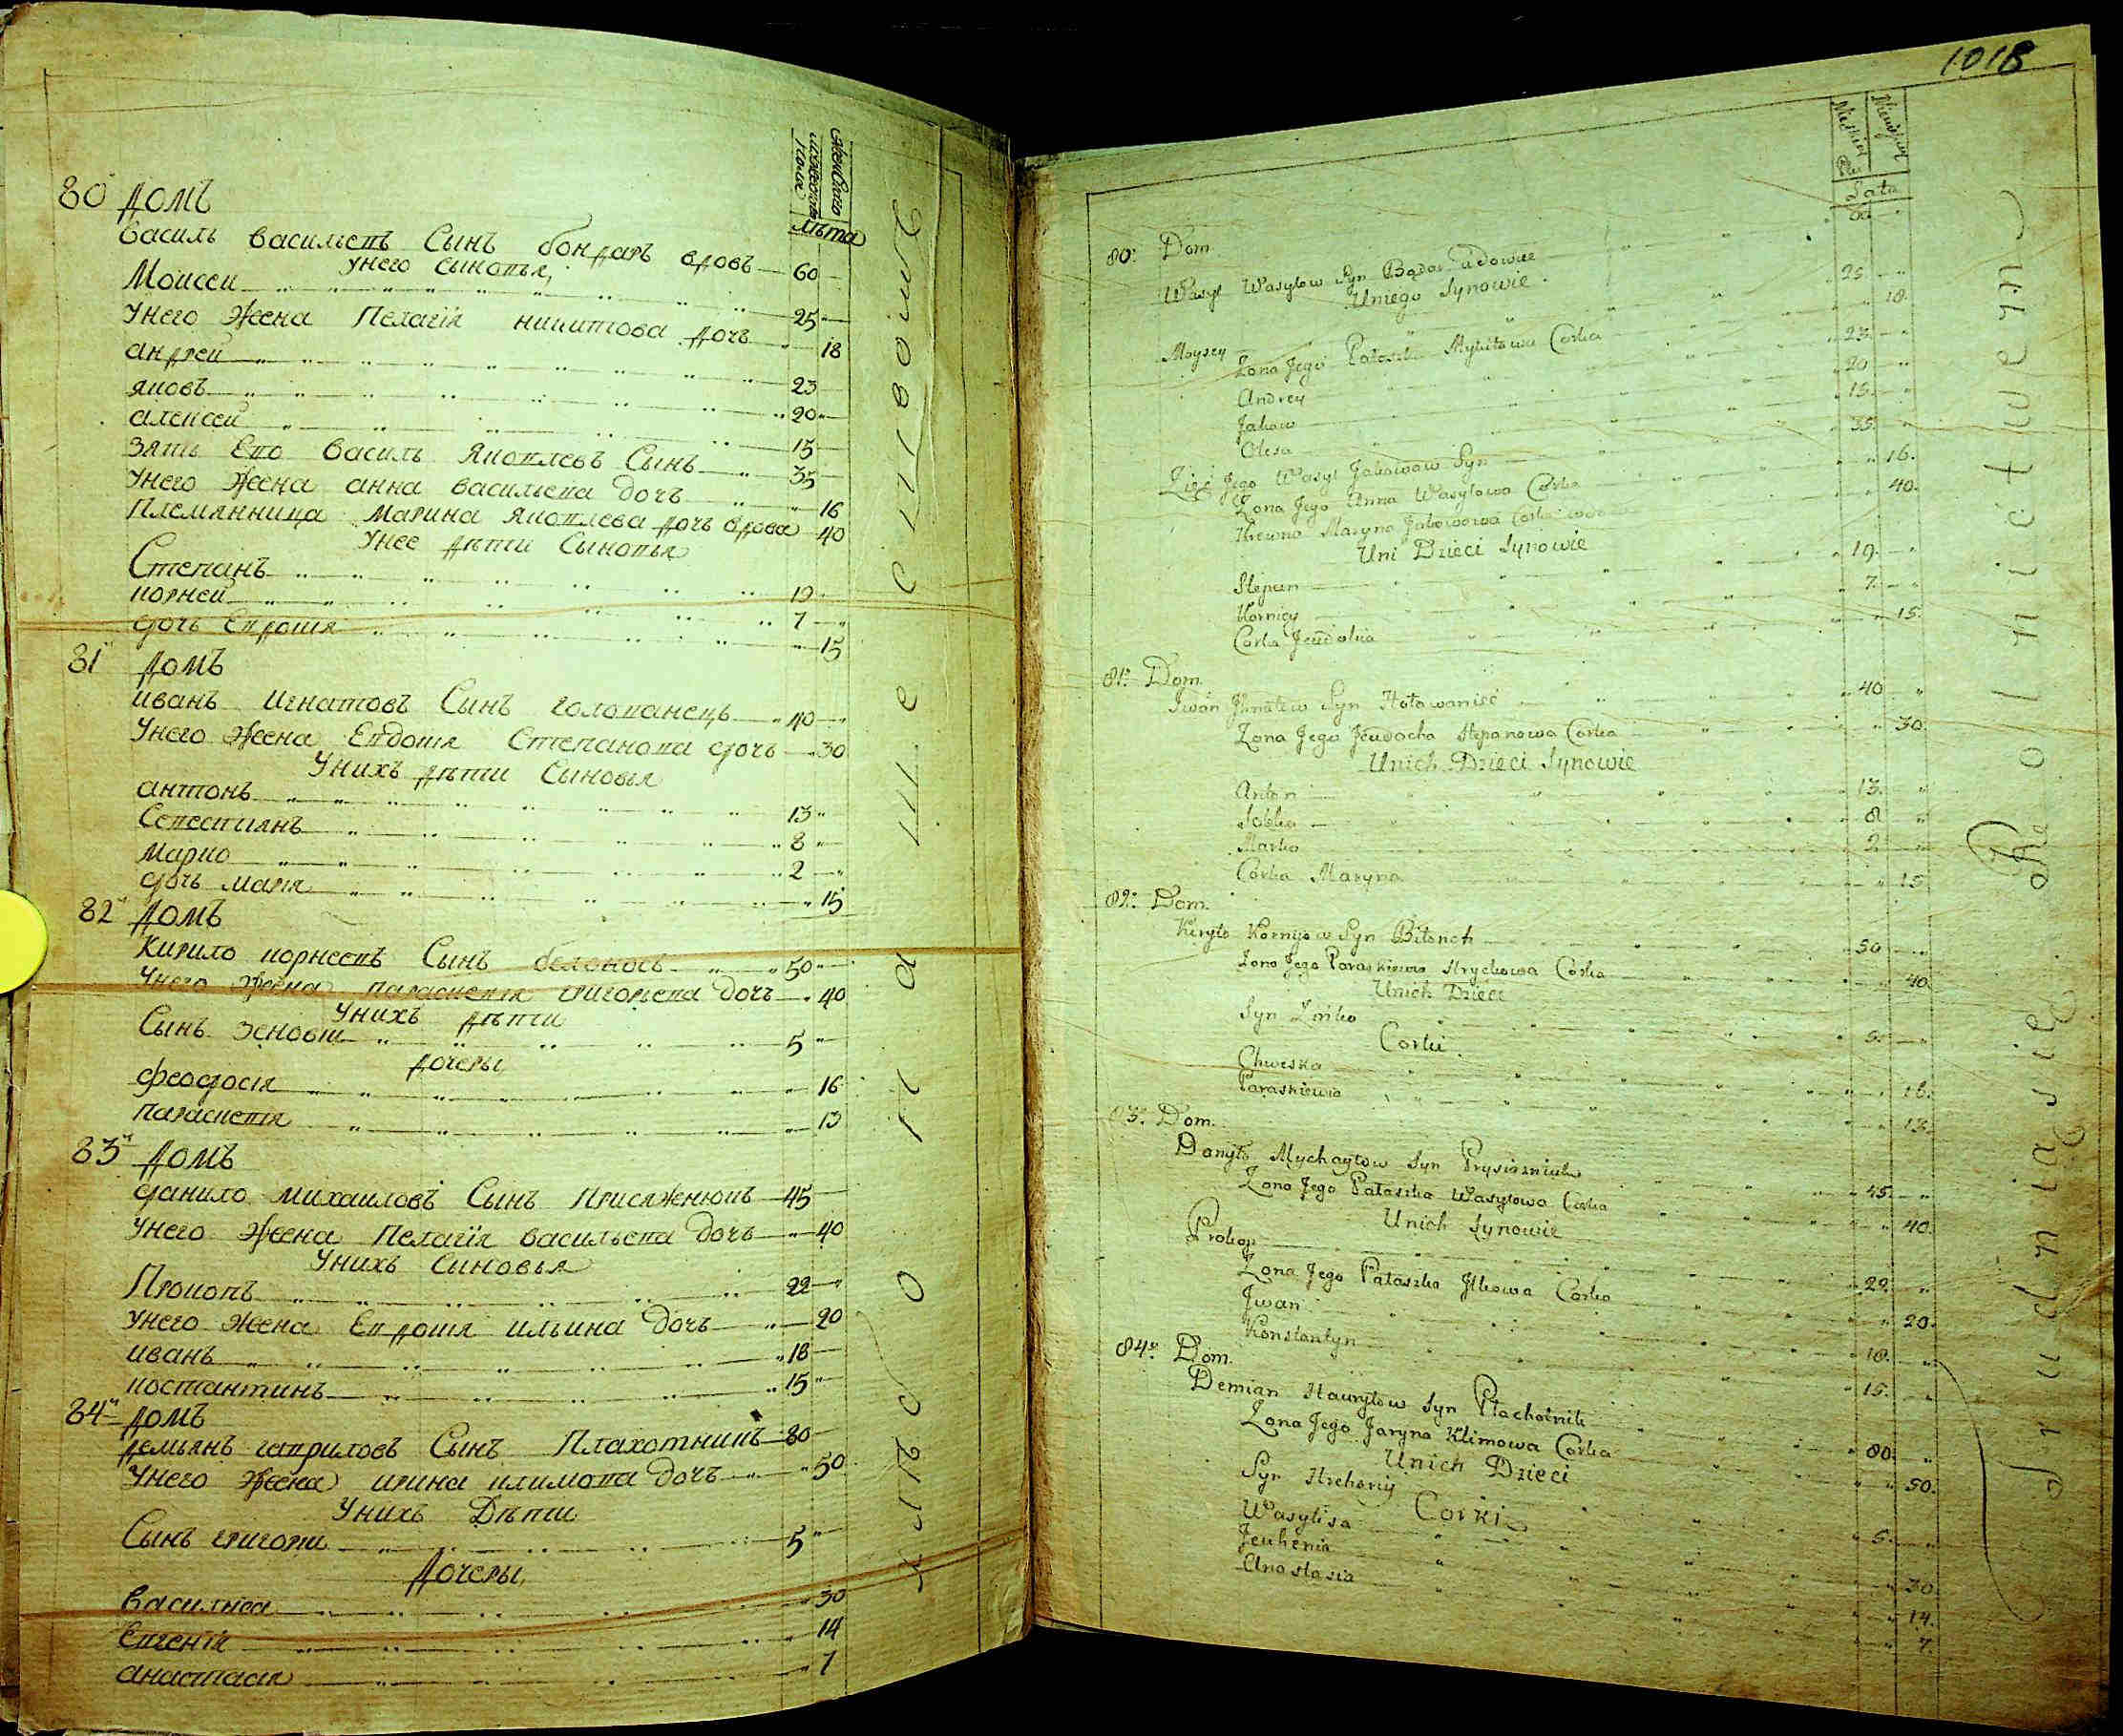 мужеска
пола
женска
лѣта
80 домъ
василь васильевъ Сынъ бондарь вдовъ 60
у него сыновья,
Моисей 25
У него жена Пелагія никитова дочь 18
андрей 23
яковъ 20
алексей 15
зять Его василь Яковлевъ Сынъ 35
У него жена анна васильева дочь 16
Племянница Марина Яковлева дочь вдова 40
У нее дѣти Сыновья
Степанъ 19
корней 7
дочь Евдокія 15
81й домъ
иванъ игнатовъ Сынъ голованець 40
У него жена Евдокія Степанова дочь 30
У нихъ дѣти Сыновья
антонъ 13
Севестиянъ 8
марко 2
дочь маря 15
82й домъ
Кирило корнеевъ Сынъ белонось 50
У него жена параскевія григорьева дочь 40
У нихъ дѣти
Сынъ зеновій 5
дочеры
феодосія 16
параскевія 13
83й домъ
данило михаиловъ Сынъ Присяженюкъ 45
У него жена Пелагія васильева дочь 40
У нихъ Синовья
Прокопъ 22
У него жена Евдокія ильина дочь 20
иванъ 18
костантинъ 15
84й домъ
демьянъ гавриловъ Сынъ Плахотникъ 80
У него жена ирина климова дочь 50
У нихъ Дѣти
Сынъ григорій 5
Дочеры,
василиса 30
Евгенія 14
анастасія 7
1018
Lata
80. Dom. 60
Wasyl Wasylow Syn Bądar Udowiec
U niego Synowie. 25
Moysey 18.
Zona Jego Pałaszka Mykitowa Corka 23
Andrey 20
Jakow 15.
Olexa 35
Zięć Jego Wasyl Jakowow Syn 16.
Zona Jego Anna Wasylowa Corka 40.
Krewna Maryna Jakowowa Corka
U ni Dzieci Synowie
Stepan 19.
Korniey 7.
Corka Jeudokia 15.
81. Dom.
Iwan Jhnatow Syn Hołowanieć 40
Zona Jego Jeudocha Stepanowa Corka 30.
U nich Dzieci Synowie
Anton 13.
Sobko 8
Marko 2
Corka Maryna 15
82. Dom.
Kiryło Kornyow Syn Biłonoh 50
Zona Jego Paraskiewia Hryckowa Corka 40.
U nich Dzieci
Syn Zinko 5.
Corki.
Chweska 16.
Paraskiewia 13.
83. Dom.
Danyło Mychayłow Syn Prysiazniuk 45.
Zona Jego Pałaszka Wasylowa Corka 40.
U nich Synowie
Prokop 22.
Zona Jego Pałaszka Jlkowa Corka 20.
Jwan 18.
Konstantyn 15.
84. Dom.
Demian Hawryłow Syn Płachotnik 80.
Zona Jego Jaryna Klimowa Corka 50.
U nich Dzieci
Syn Hrehoriy 5.
Corki
Wasylisa 30
Jeuhenia 14.
Anastasia 7.